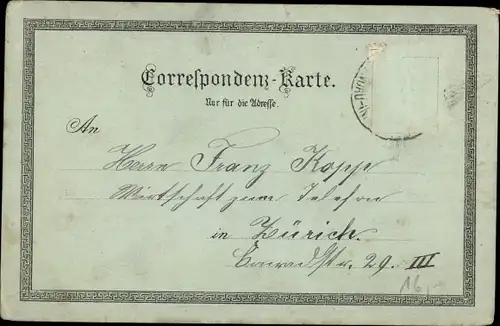 Correspondenz-Karte.
Nur für die Adresse.
An
Herrn Franz Kopp
Wirtschaft zum Telefon
in Zürich.
Conradstr. 29. III
16,-